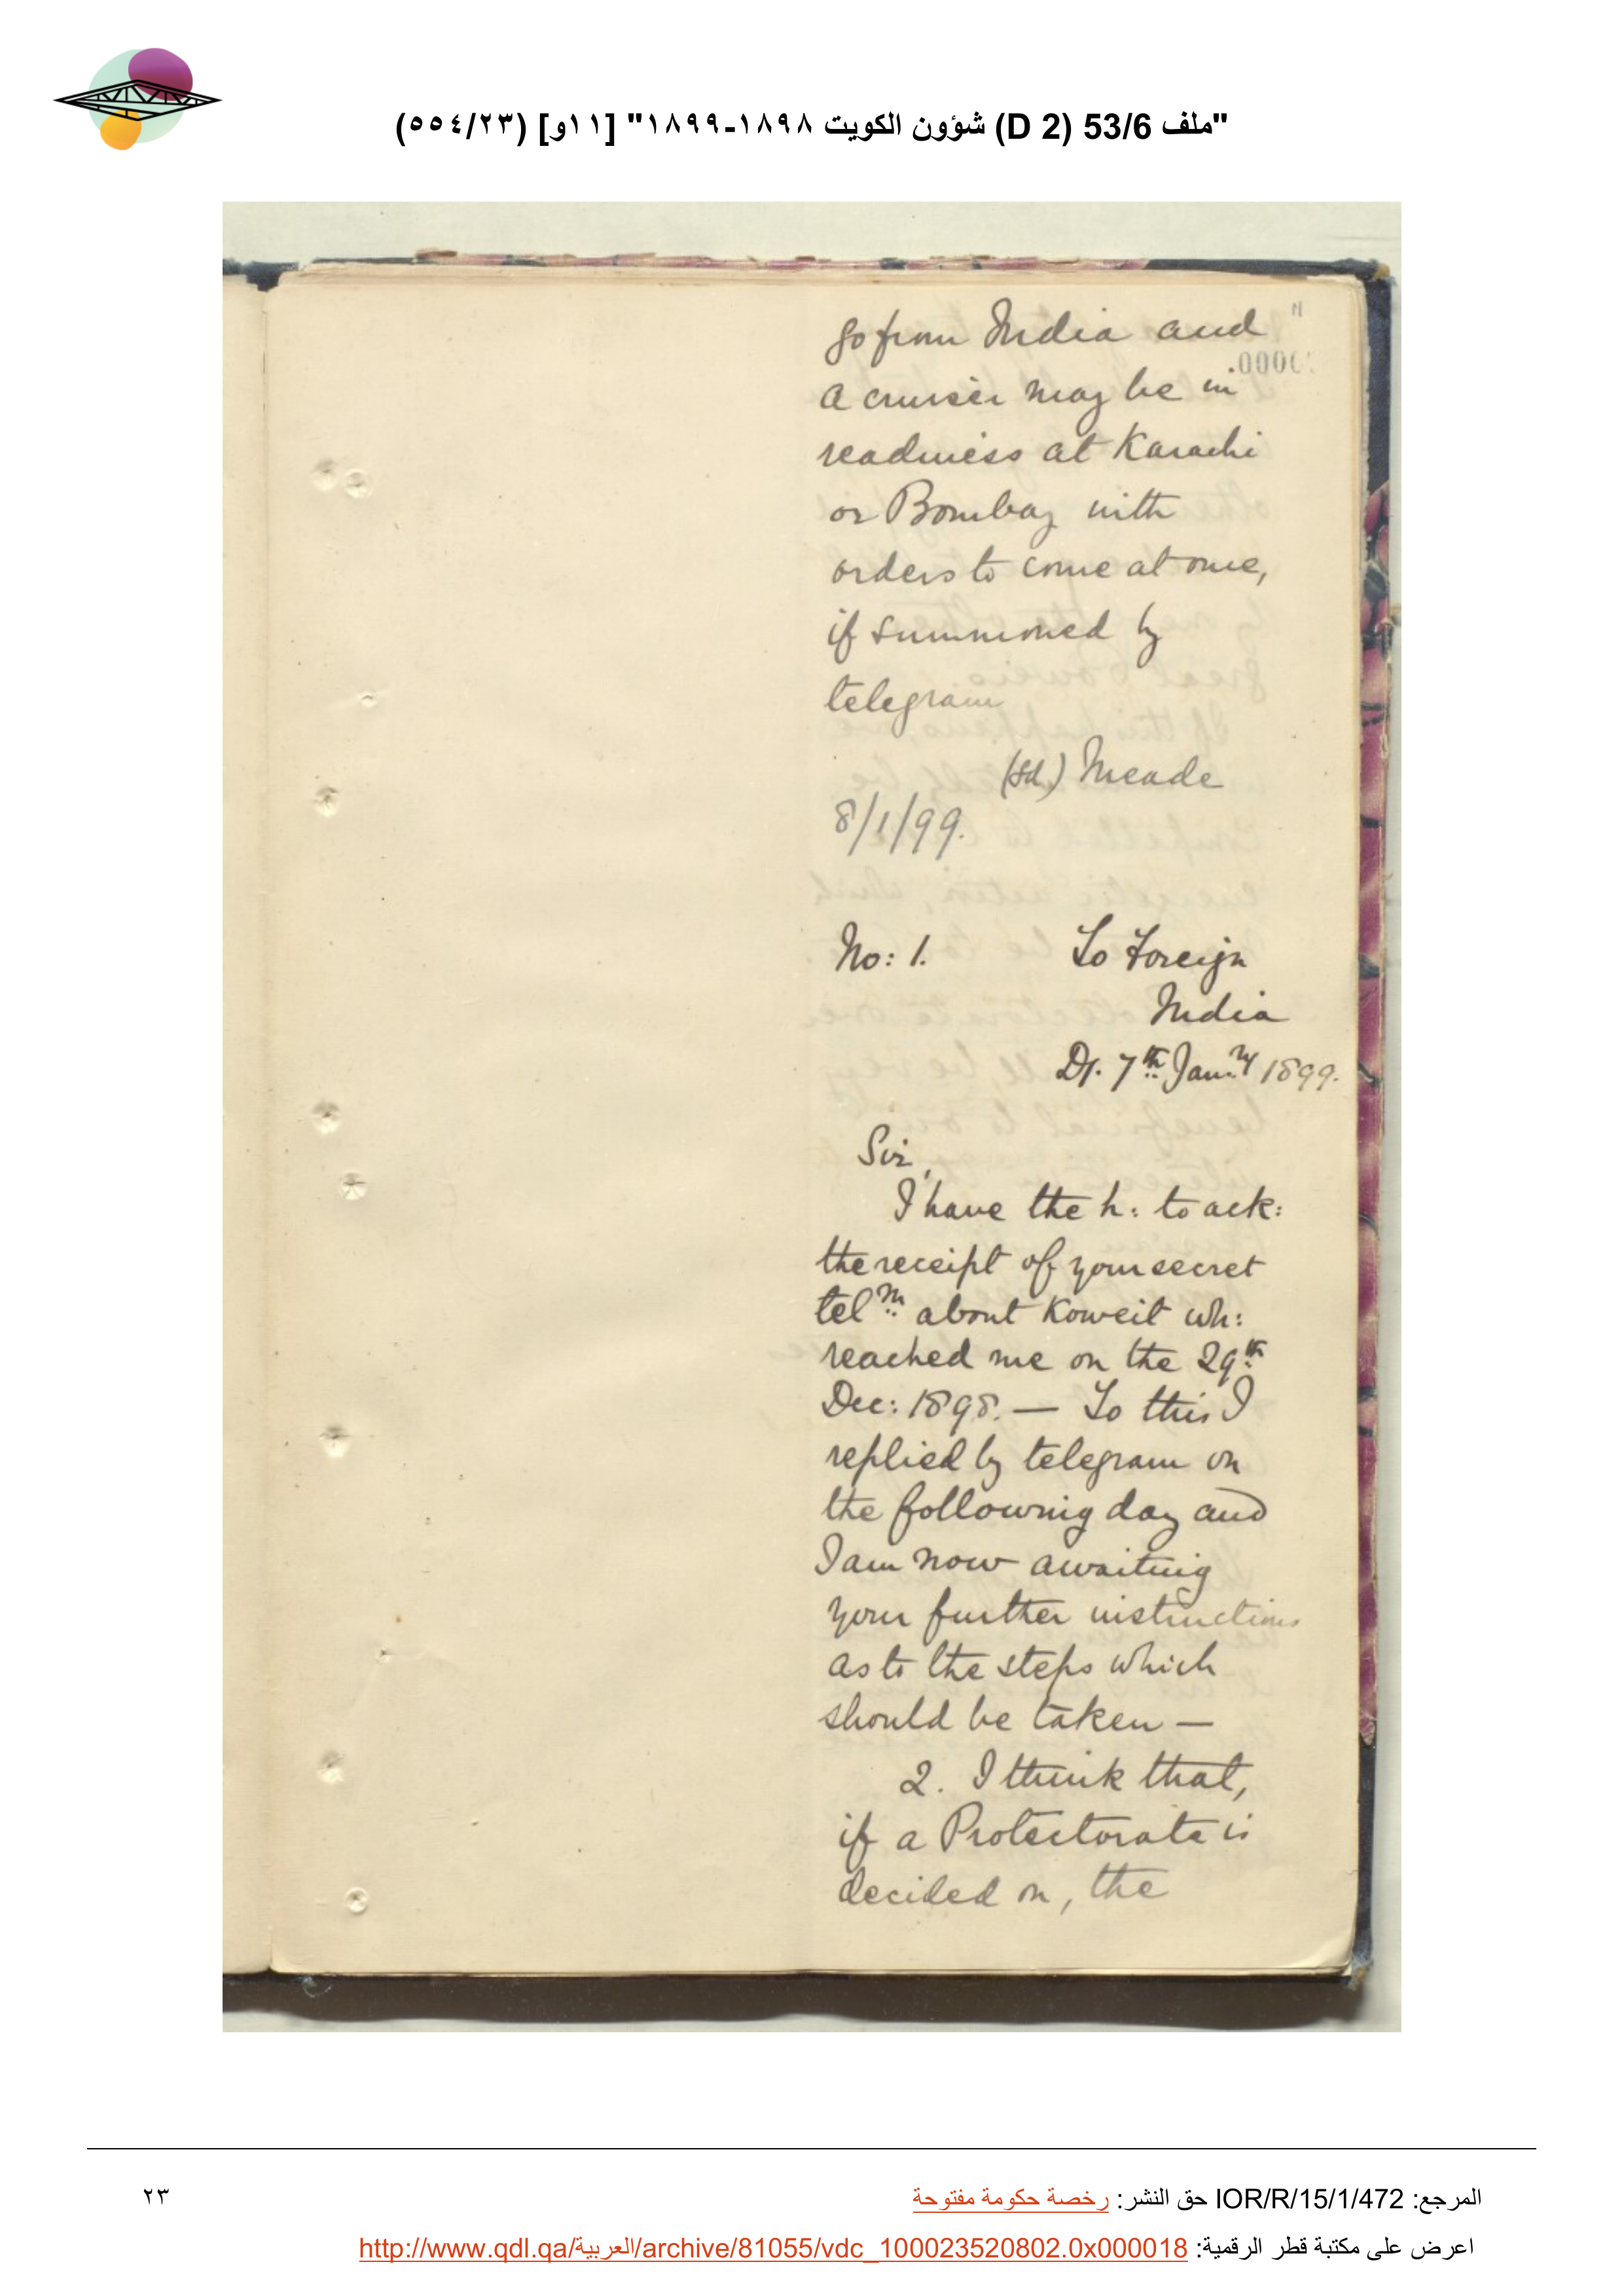 "ملف 53/6 (D 2) شؤون الكويت ١٨٩٨-١٨٩٩" [١١و] (٥٥٤/٢٣)
11
go from India and
0000
a cruiser may be in
readiness at Karachi
or Bombay with
orders to come at once,
if summoned by
telegram
(sd.) Meade
8/1/99.
No: 1. To Foreign
India
Dt. 7th Jan:ry 1899.
Sir,
I have the h: to ack:
the receipt of your secret
tel:m about Koweit wh:
reached me on the 29th
Dec: 1898. — To this I
replied by telegram on
the following day and
I am now awaiting
your further instructions
as to the steps which
should be taken —
2. I think that,
if a Protectorate is
decided on, the
المرجع: IOR/R/15/1/472 حق النشر: رخصة حكومة مفتوحة
٢٣
اعرض على مكتبة قطر الرقمية: http://www.qdl.qa/العربية/archive/81055/vdc_100023520802.0x000018